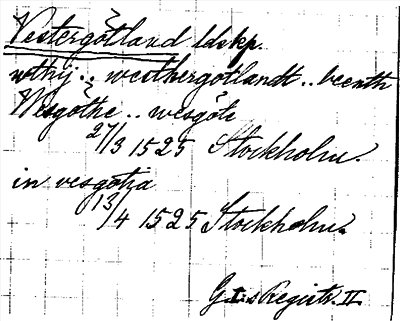 Vestergötland ldskp.
wthij .. westhergotlandt .. beenth
Wesgöthe .. wesgöte
27/3 1525 Stockholm.
in vesgotia
13/4 1525 Stockholm.
G. I:s Registr. II